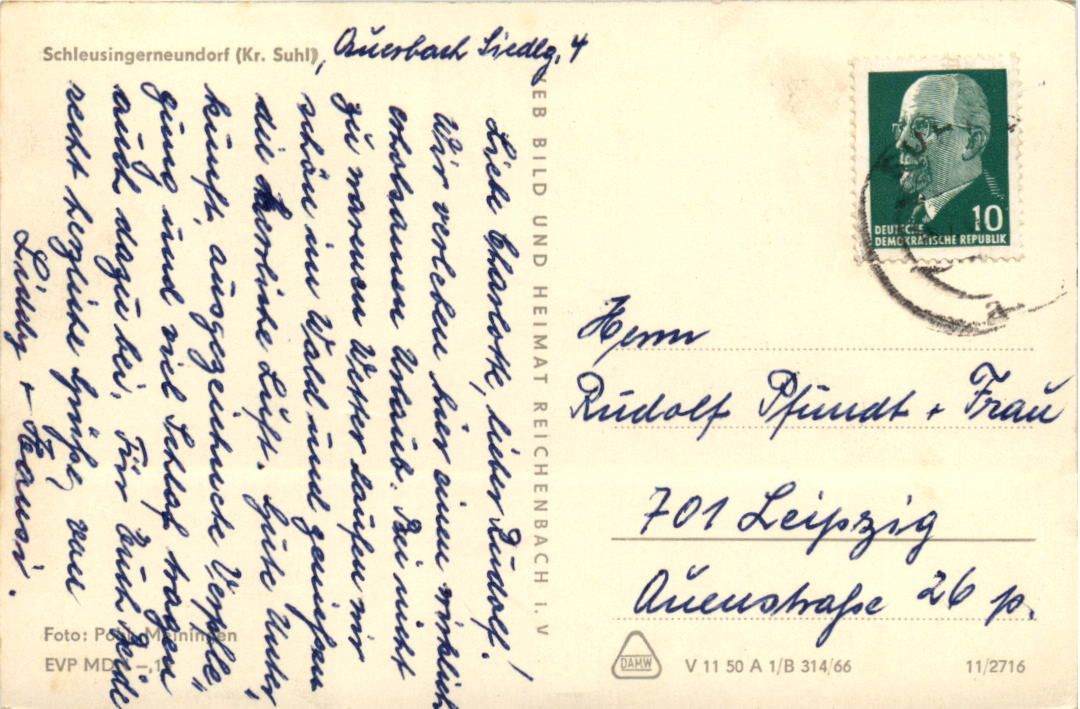 Schleusingerneundorf (Kr. Suhl), Auerbach Siedlg. 4
Liebe Charlotte, lieber Rudolf!
Wir verleben hier einen wirklich
erholsamen Urlaub. Bei nicht
zu warmen Wetter laufen wir
schön im Wald und genießen
die herrliche Luft. Gute Unter
kunft, ausgezeichnete Verpfle"
gung und viel Schlaf tragen
auch dazu bei. Für Euch beide
recht herzliche Grüße, von
Liddy + Hansi.
VEB BILD UND HEIMAT REICHENBACH I. V
Foto: Meiningen
EVP MDN
DEUTSCHE
DEMOKRATISCHE REPUBLIK
10
Herrn
Rudolf Pfundt + Frau
701 Leipzig
Auenstraße 26 p.
DAMW
V 11 50 A 1/B 314/66
11/2716